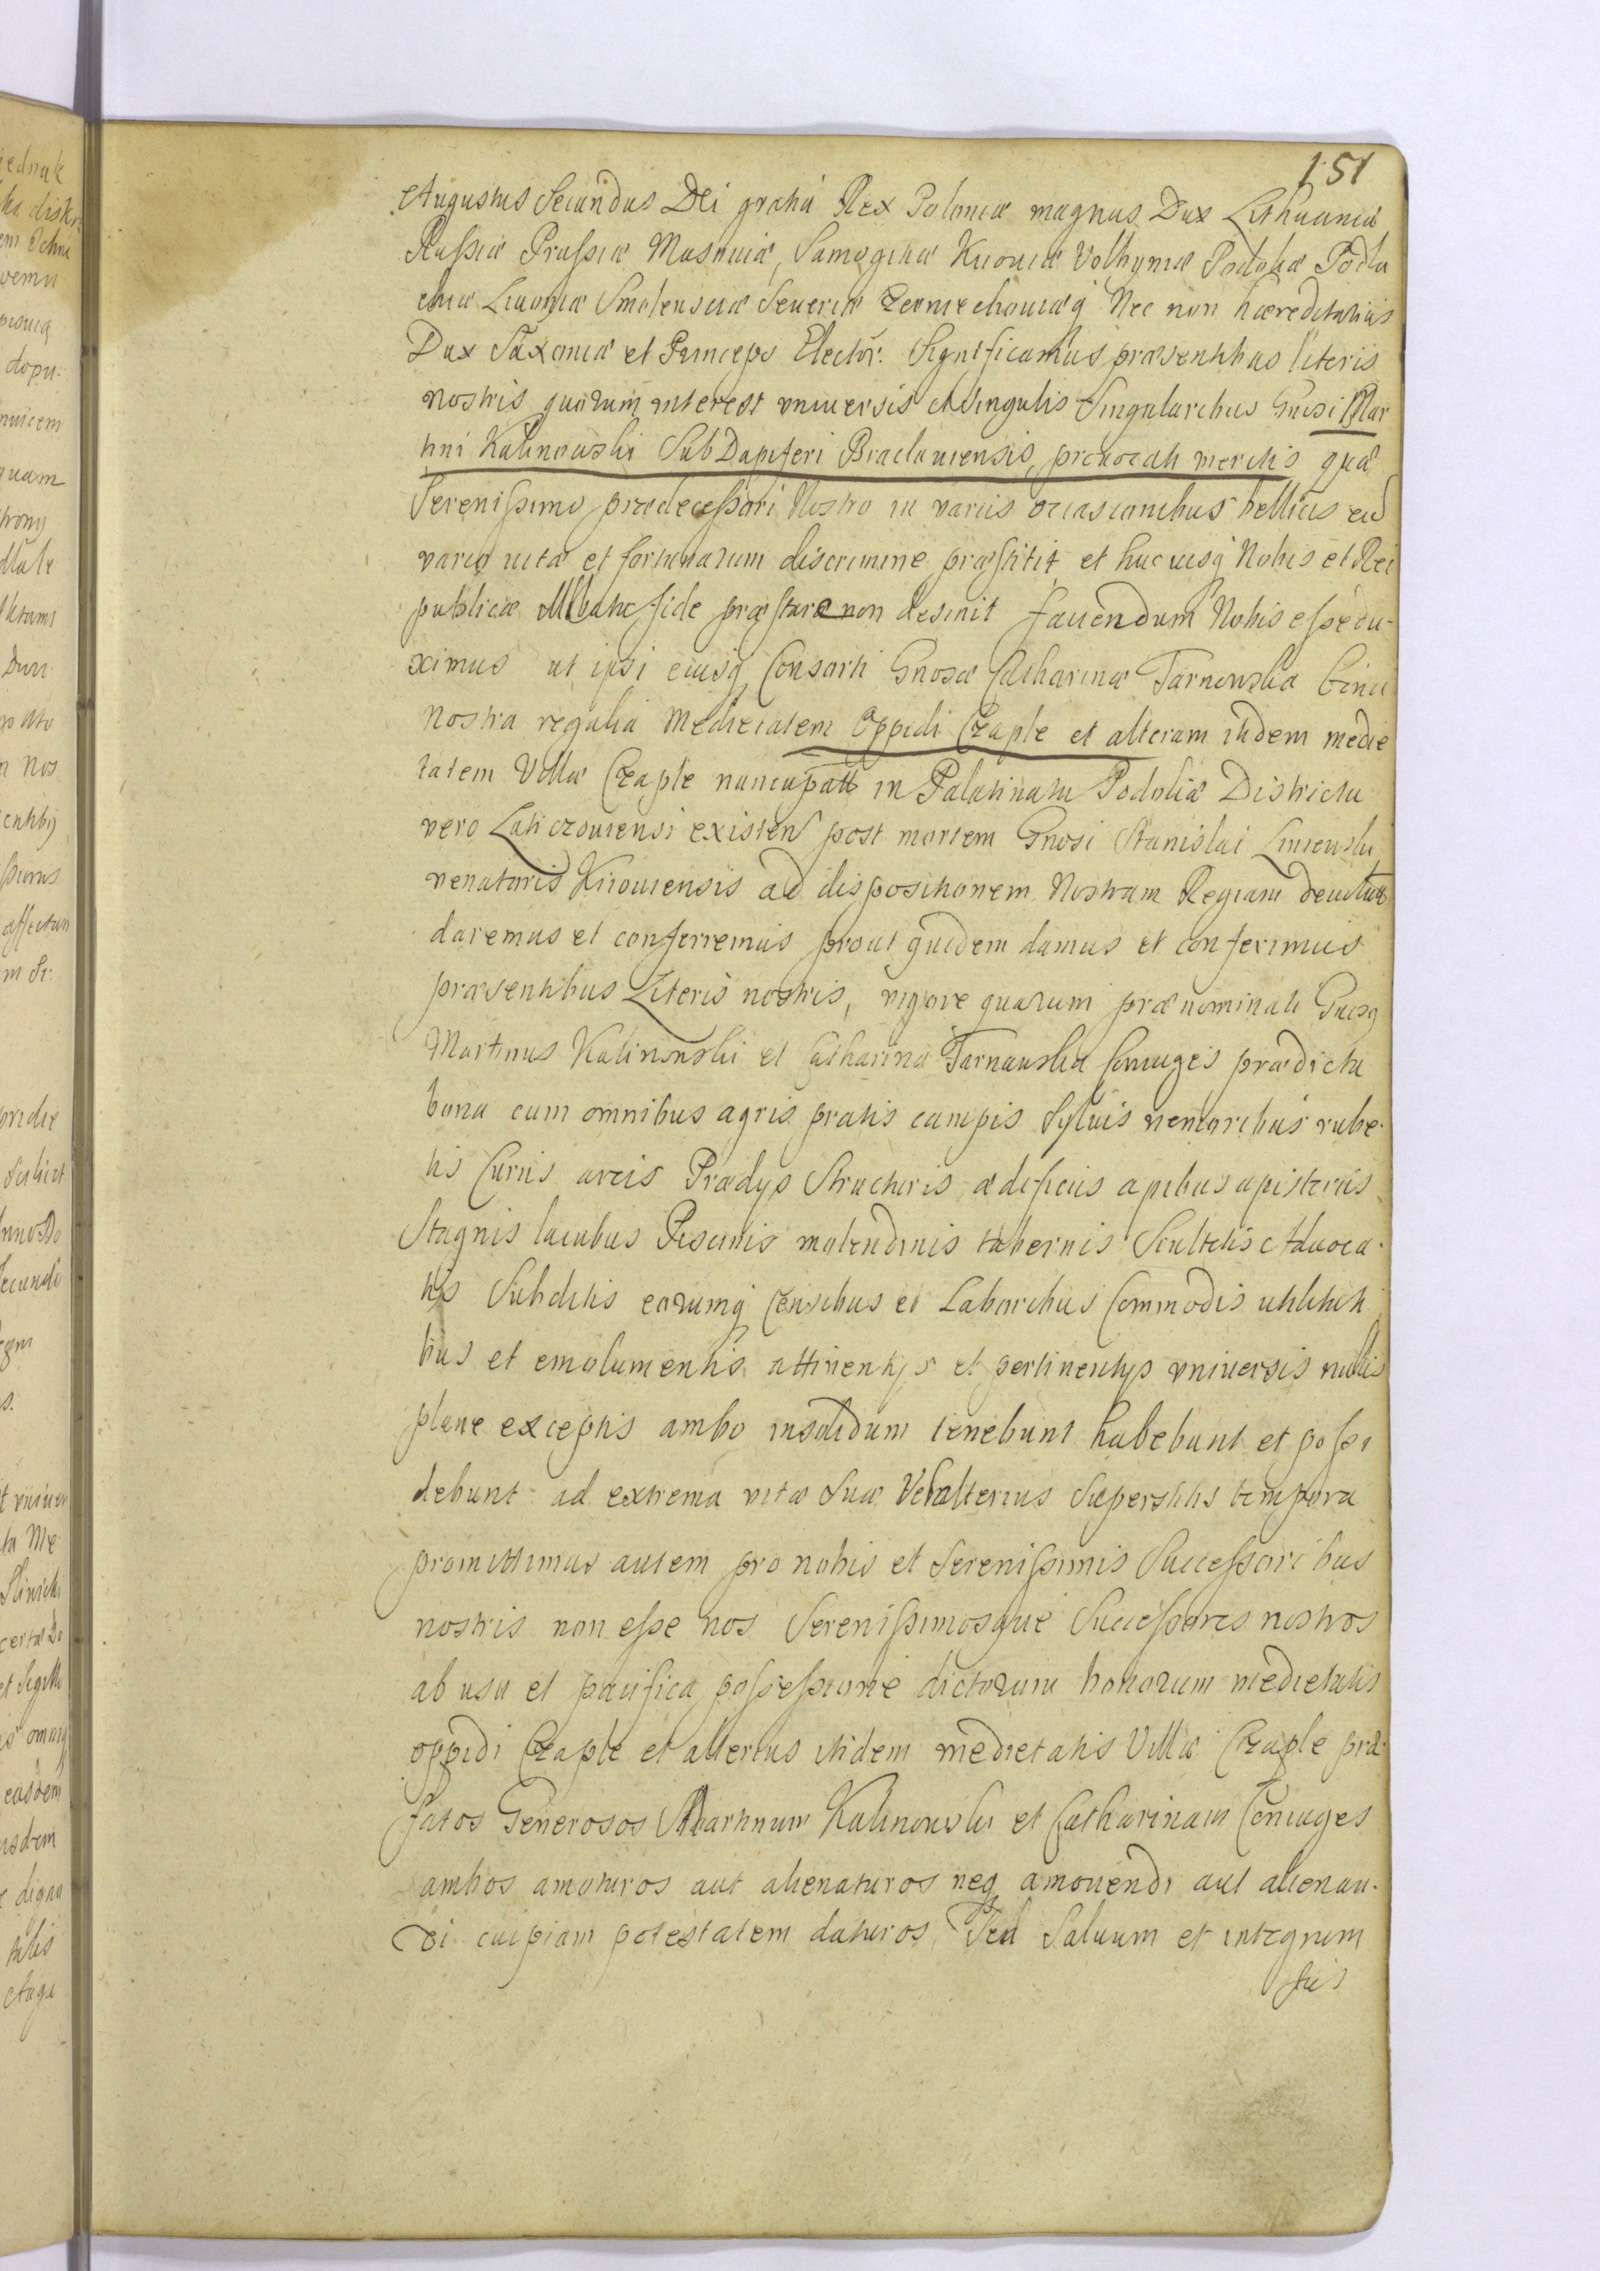 151
Augustus Secundus Dei gratia Rex Poloniæ magnus Dux Lithuaniæ
Russiæ Prussiæ Masoviæ, Samogitiæ Kiioviæ Volhyniæ Podoliæ Podla
chiæ Livoniæ Smolensciæ Severiæ Czerniechoviæq Nec non hæreditarius
Dux Saxoniæ et Princeps Elector. Significamus præsentibus literis
nostris quorum interest universis et singulis Singularibus Gnosi Mar
tini Kalinowski SubDapiferi Braclaviensis, provocati meritis quæ
Serenissimo prædecessori Nostro in variis occasionibus bellicis cu
vario vitæ et fortunarum discrimine præstitit et hucusq Nobis et Rei
publicæ fide præstare non desinit favendum Nobis esse du-
ximus ut ipsi eiusq Consorti Gnosæ Catharinæ Tarnowska bina
Nostra regalia Medietatem Oppidi Czaple et alteram itidem medie
tatem Villæ Czaple nuncupatt in Palatinatu Podoliæ Districtu
vero Laticzoviensi existen post mortem Gnosi Stanislai
venatoris Kiioviensis ad dispositionem Nostram Regiam devolutt
daremus et conferremus prout quidem damus et conferimus
præsentibus Literis nostris, vigore quarum prænominati
Martinus Kalinowski et Catharina Tarnawska Coniuges prædicta
bona cum omnibus agris pratis campis Sylvis nemoribus rube-
tis Curiis arcis Prædys Structuris ædificiis apibus apisteriis
Stagnis lacubus Piscinis molendinis tabernis Scultetis Advoca-
tis Subditis eorumq Censibus et Laboribus Commodis utilitati
bus et emolumentis attinentys et pertinentys universis nullis
plane exceptis ambo insolidum tenebunt habebunt et possi
debunt ad extrema vitæ Suæ Vel alterius Superstitis tempora
promittimus autem pro nobis et Serenissimis Successoribus
nostris non esse nos Serenissimosque Successores nostros
ab usu et pacifica possessione dictorum bonorum medietatis
oppidi Czaple et alterius itidem medietatis Villæ Czaple præ-
fatos Generosos Martinum Kalinowski et Catharinam Coniuges
ambos amoturos aut alienaturos neq amovendi aut alienan-
di cuipiam potestatem daturos, Sed Salvum et integrum
Ius